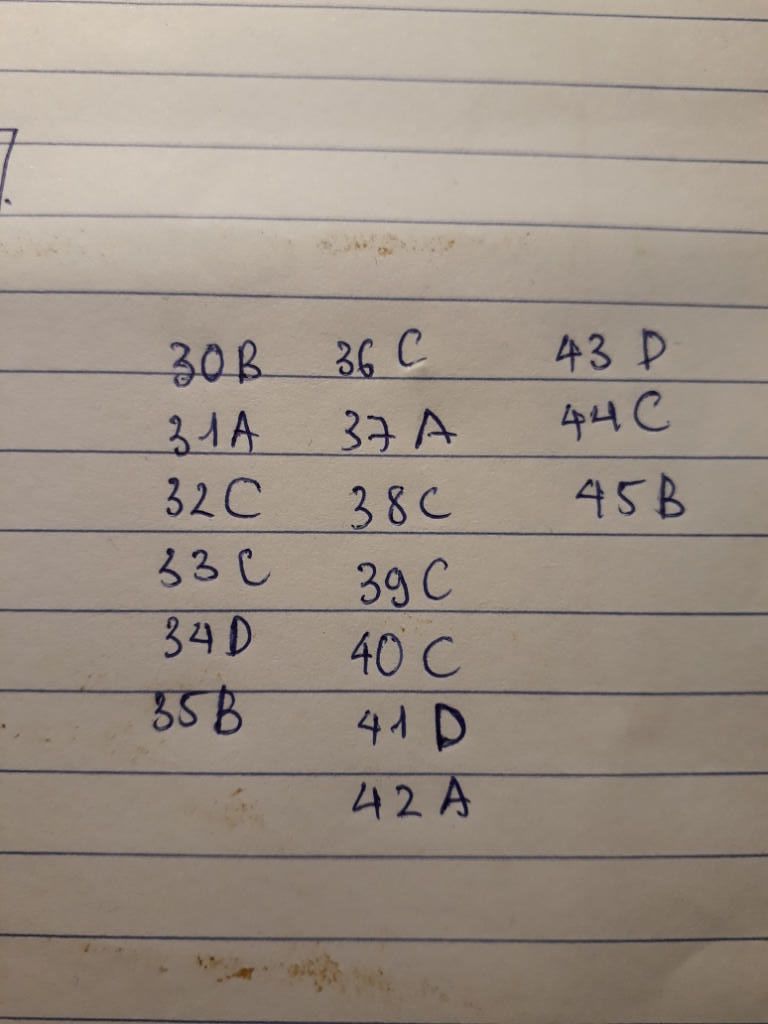 30 B
31 A
32 C
33 C
34 D
35 B
36 C
37 A
38 C
39 C
40 C
41 D
42 A
43 D
44 C
45 B